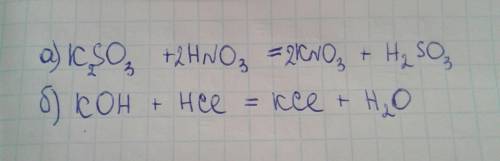 а) K₂SO₃ + 2HNO₃ = 2KNO₃ + H₂SO₃
б) KOH + HCl = KCl + H₂O